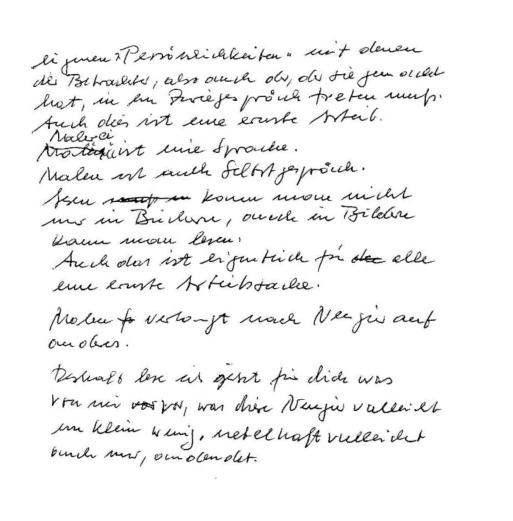 eigenen "Persönlichkeiten" mit denen
der Betrachter, also auch der, der sie gemacht
hat, in ein Zwiegespräch treten muß.
Auch dies ist eine ernste Arbeit.
Malerei
ist eine Sprache.
Malen ist auch Selbstgespräch.
Lesen kann man nicht
nur in Büchern, auch in Bildern
kann man lesen.
Auch das ist eigentlich für alle
eine ernste Arbeitssache.
Malen verlangt nach Neugier auf
anderes.
Deshalb lese ich jetzt für dich was
von mir vor, was diese Neugier vielleicht
ein klein wenig, nebelhaft vielleicht
auch nur, andeutet.